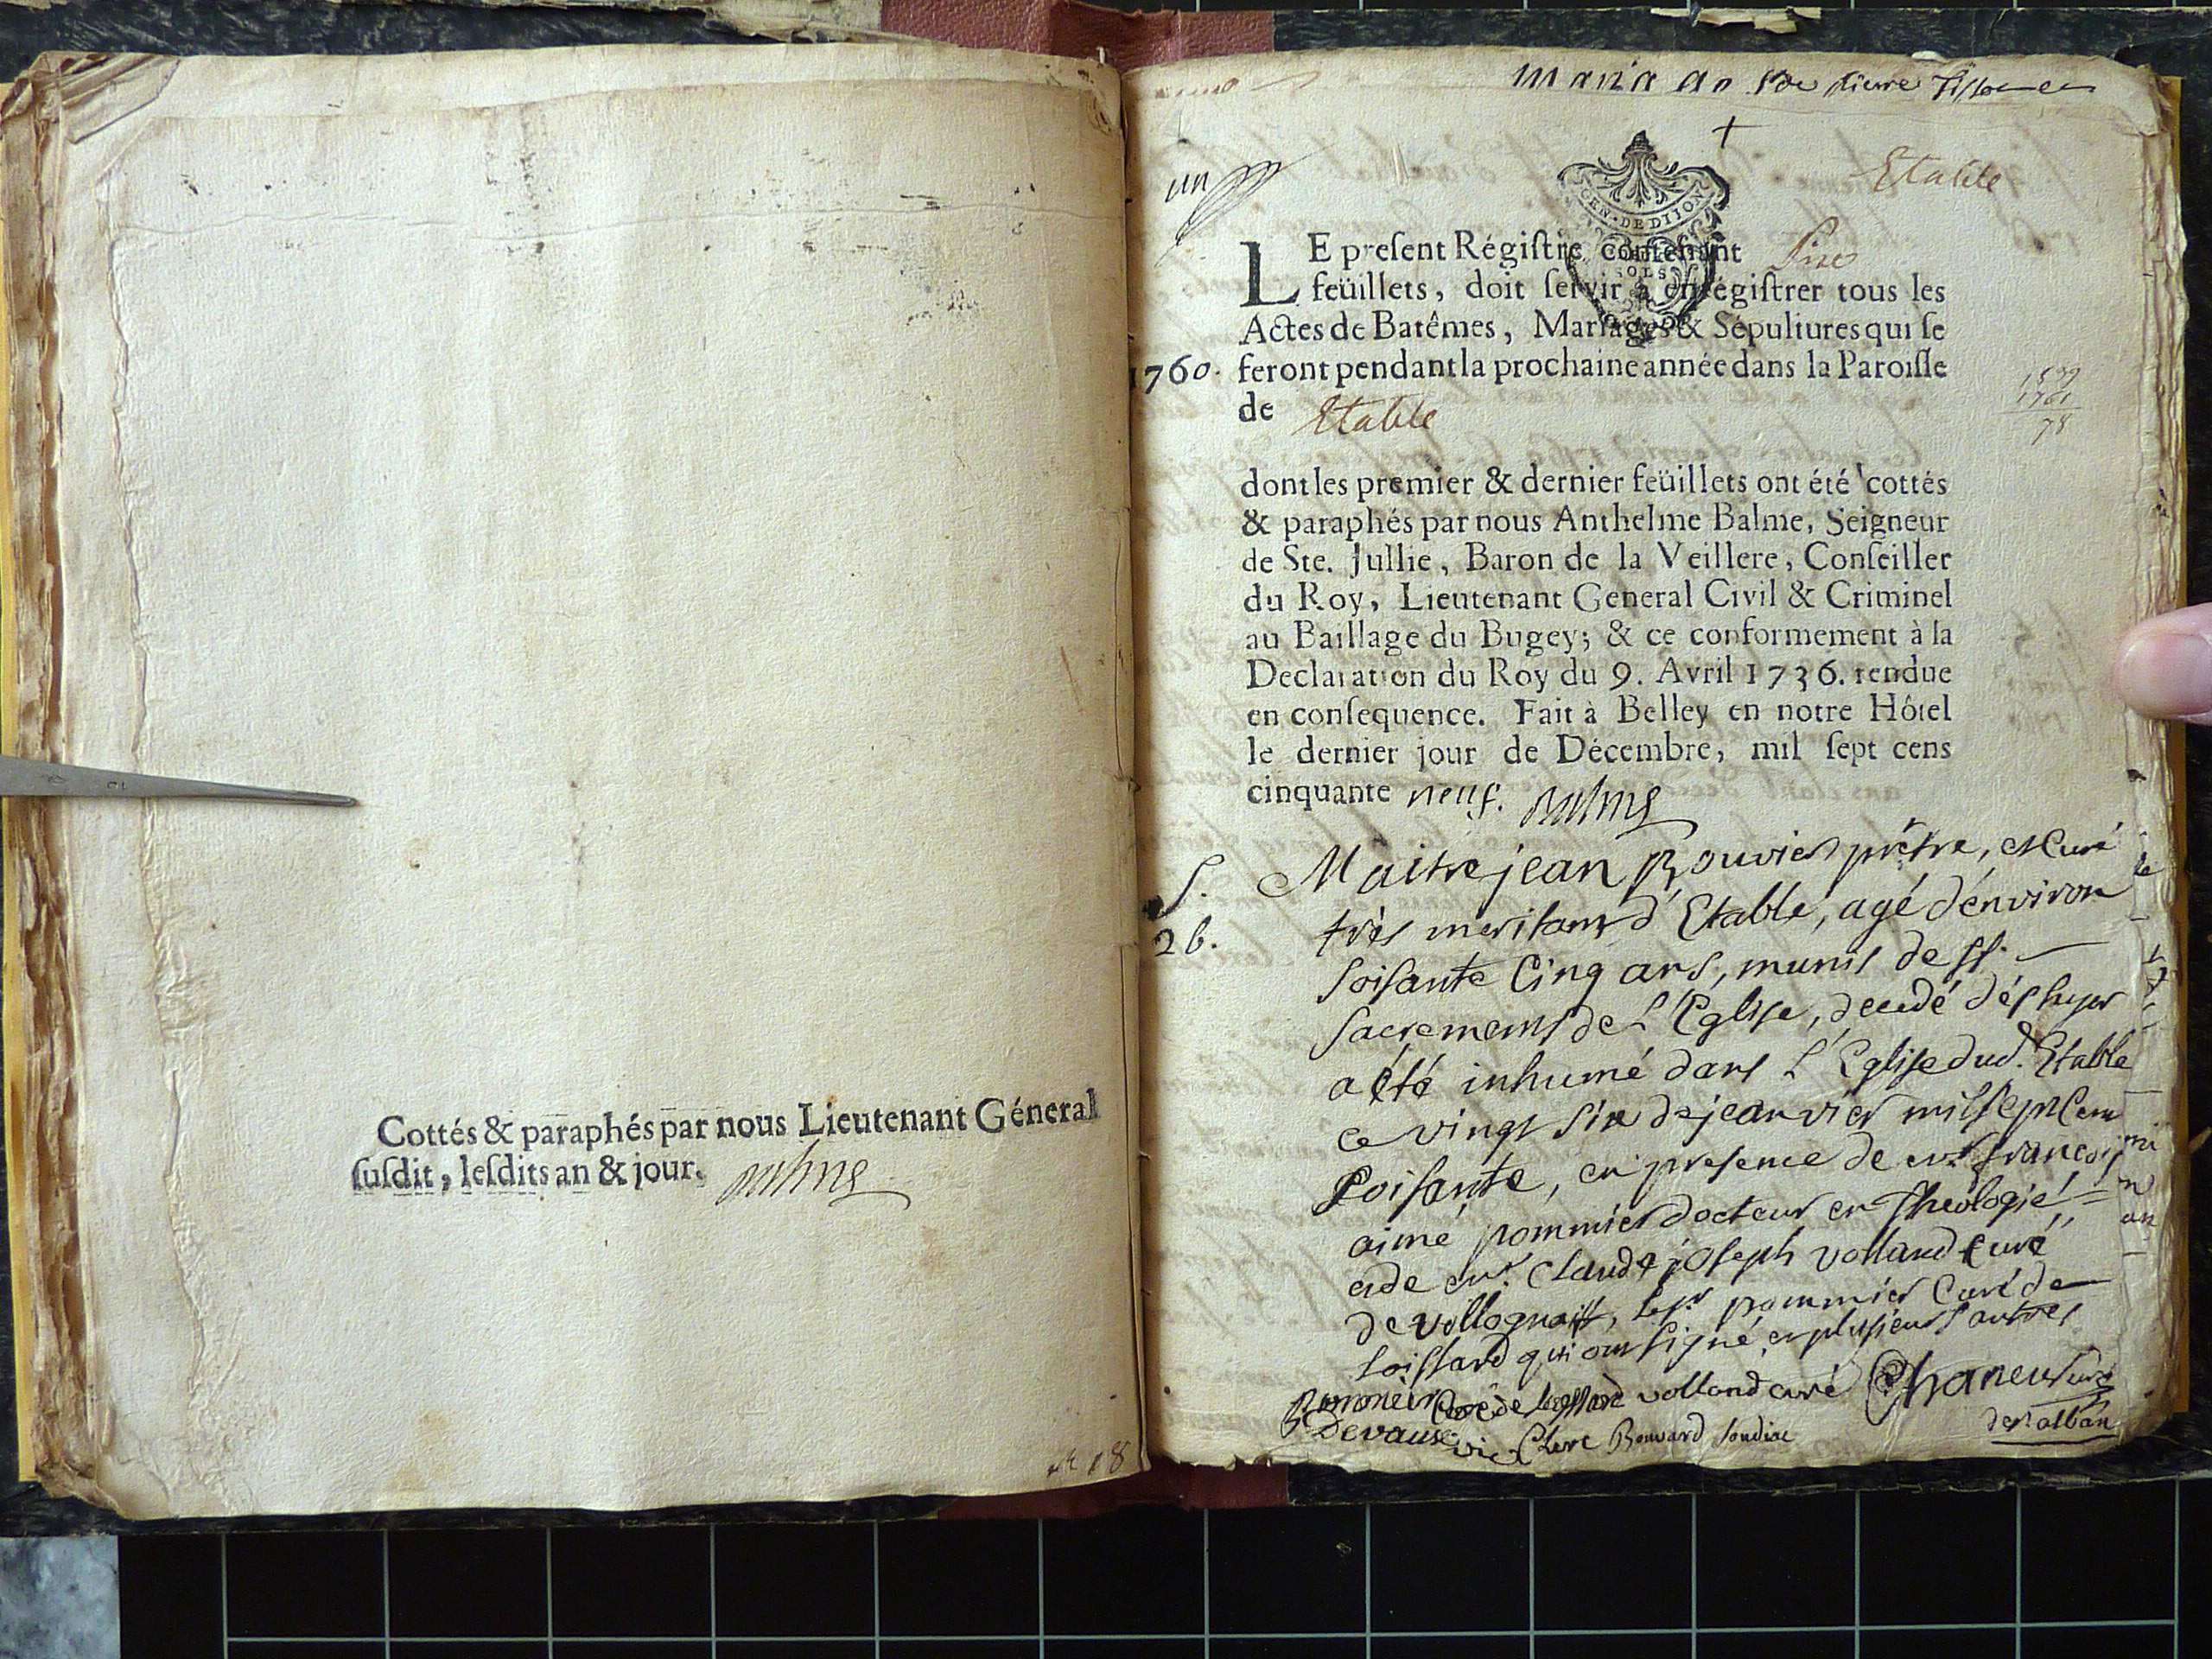 Cottés & paraphés par nous Lieutenant Géneral
ſuſdit, leſdits an & jour. Balme
18
Etable
un
GEN·DE DIJON
SOLS
LE preſent Régiſtre contenant Six
feüillets, doit ſervir à enrégiſtrer tous les
Actes de Batêmes, Mariages & Sépultures qui ſe
1760. feront pendant la prochaine année dans la Paroiſſe
de Etable
1839
1761
78
dont les premier & dernier feüillets ont été cottés
& paraphés par nous Anthelme Balme, Seigneur
de Ste. Jullie, Baron de la Veillere, Conſeiller
du Roy, Lieutenant General Civil & Criminel
au Baillage du Bugey; & ce conformement à la
Declaration du Roy du 9. Avril 1736. rendue
en conſequence. Fait à Belley en notre Hôtel
le dernier jour de Décembre, mil ſept cens
cinquante neuf. Balme
S.
26.
Maitre jean Rouvier prêtre, et Curé
très meritant d'Etable, agé d'environ
soisante Cinq ans, munis de ss.
sacrements de L'Eglise, decedé d'és hyer
a été inhumé dans L'Eglise dud. Etable
ce vingt six de jeanvier mil sept Cent
soisante, en presence de mr. francois
aimé pommier docteur en theologie,
et de mr. Claude joseph volland curé
de vollognatt, pommier Curé de
loissard qui ont signé, et plusieurs autres
Pommier Curé de volland curé Chaneu Curé
de st alban
Devaux vic. Clerc Bouvard sindiac